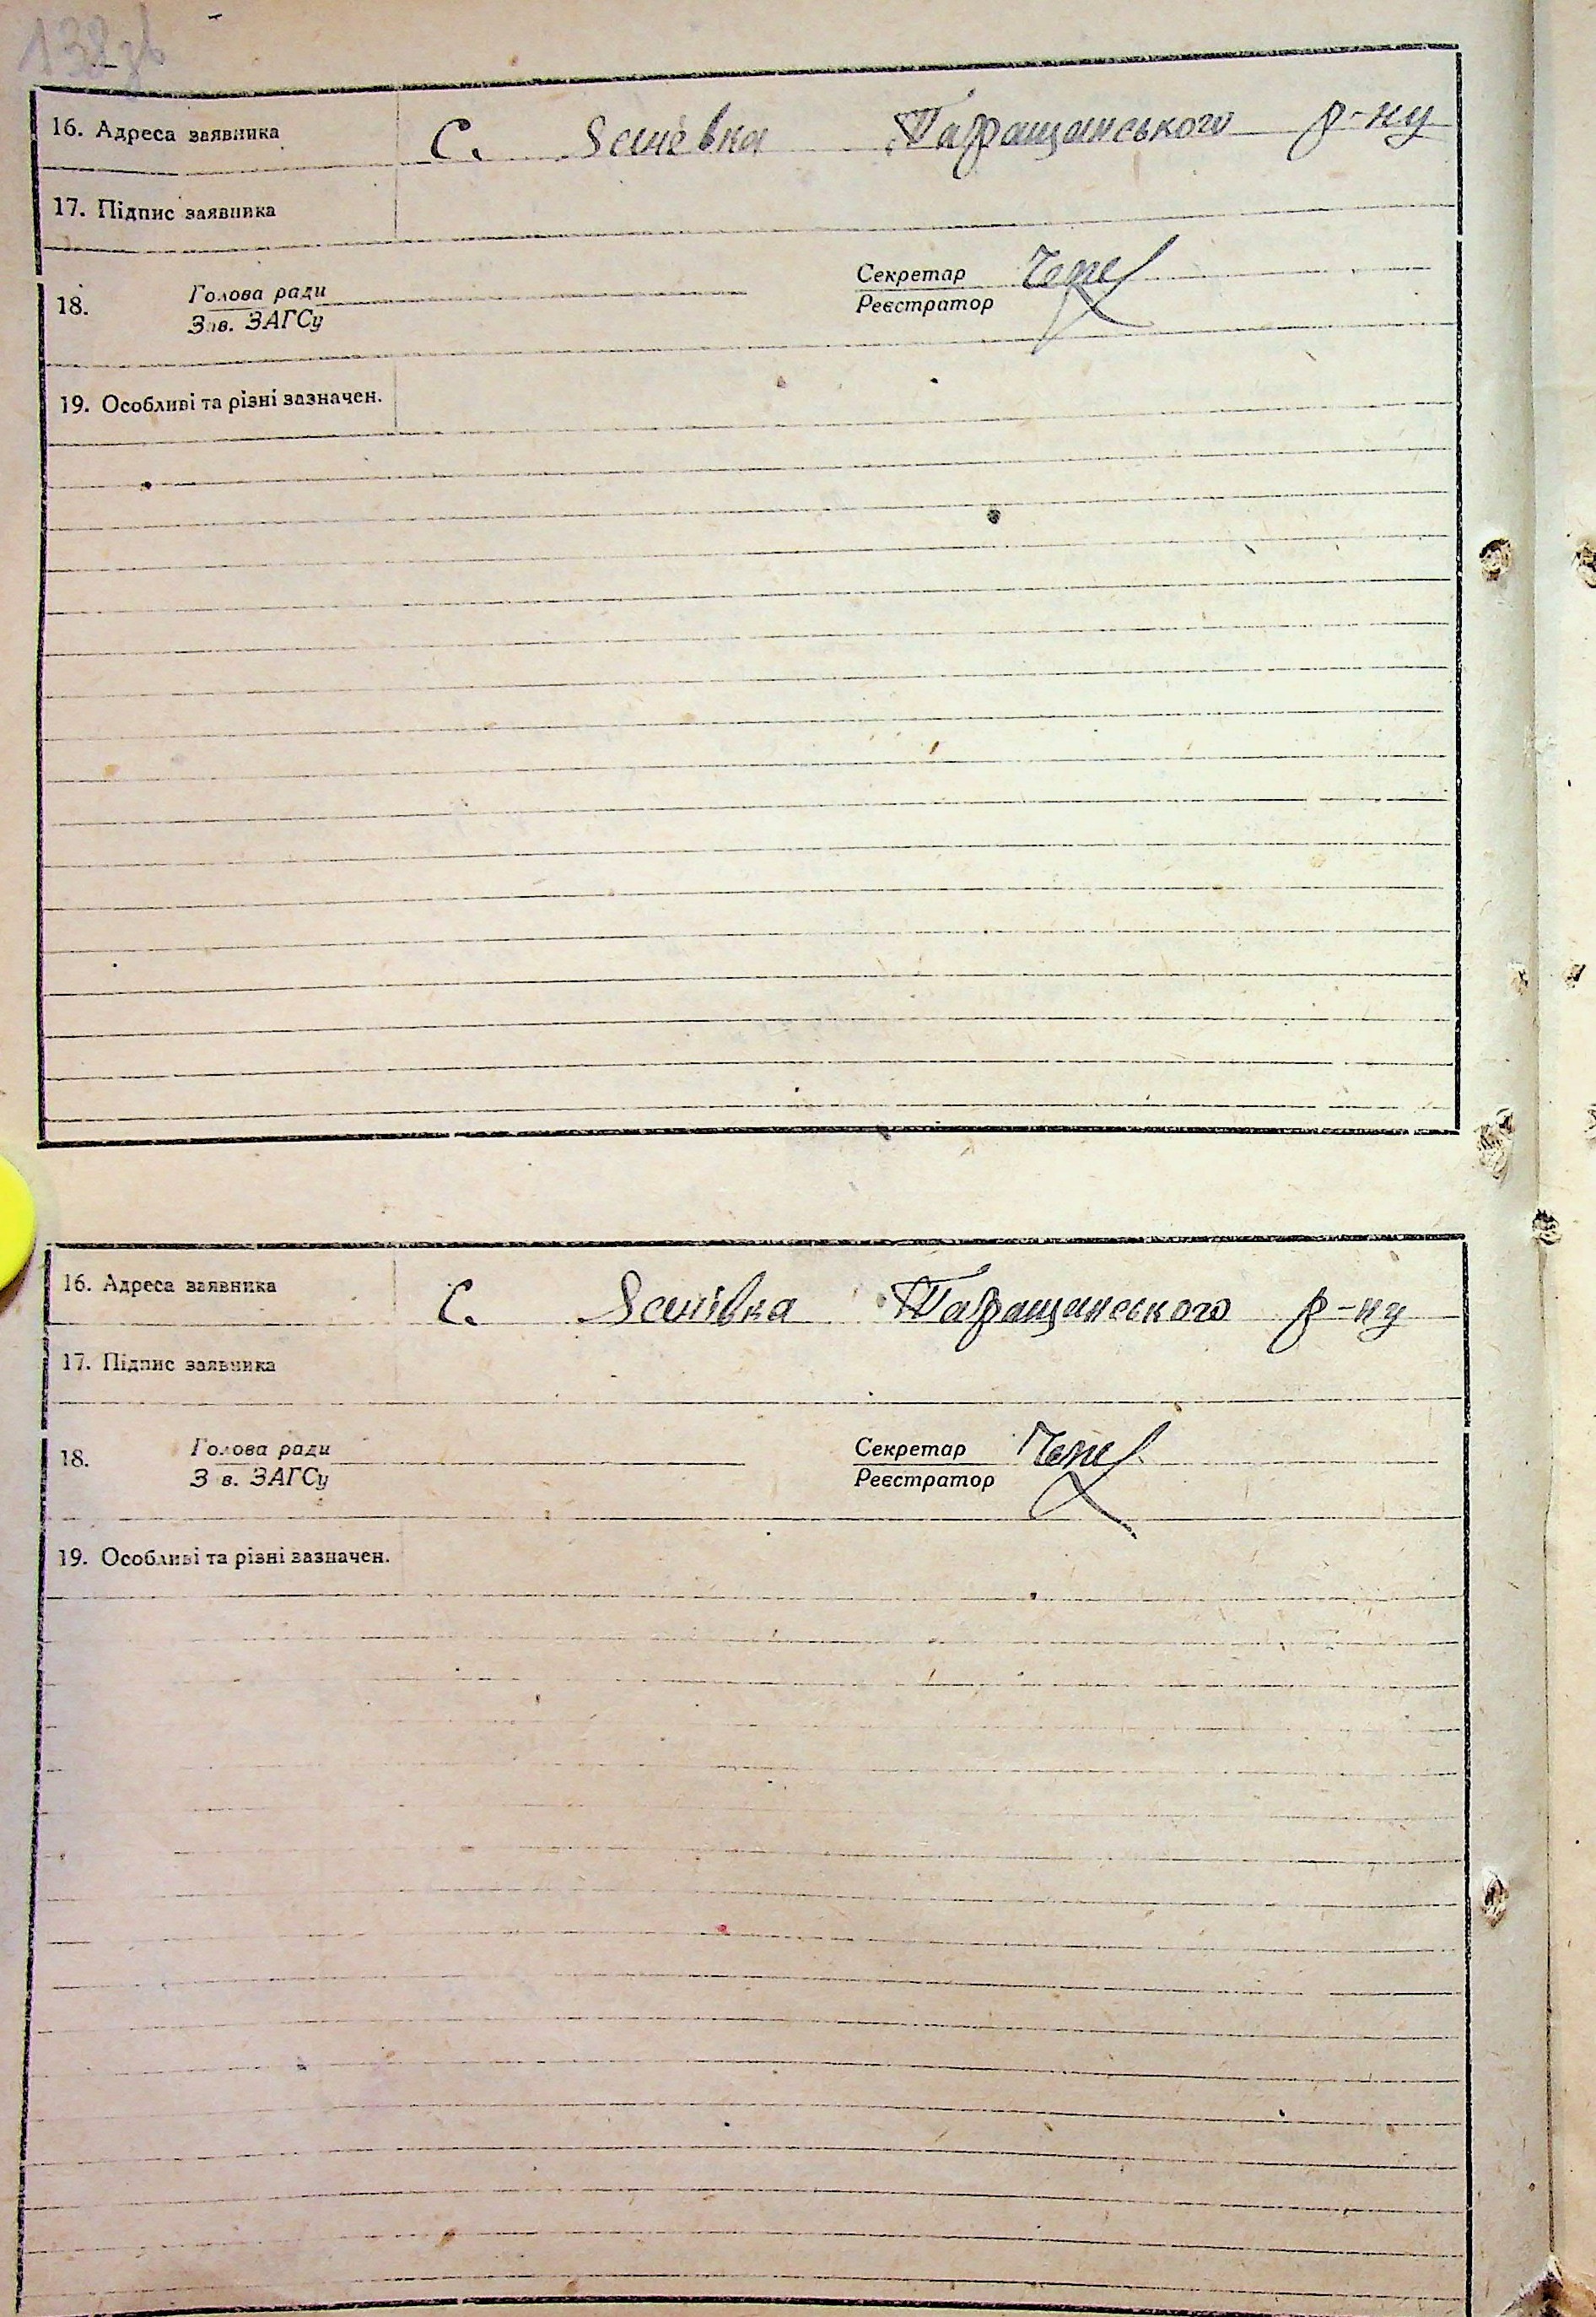 138зв
16. Адреса заявника С. Яснівка Таращанського р-ну
17. Підпис заявника
18. Голова ради Секретар
Зав. ЗАГСу Реєстратор
19. Особливі та різні зазначен.
16. Адреса заявника С. Яснівка Таращанського р-ну
17. Підпис заявника
18. Голова ради Секретар
Зав. ЗАГСу Реєстратор
19. Особливі та різні зазначен.